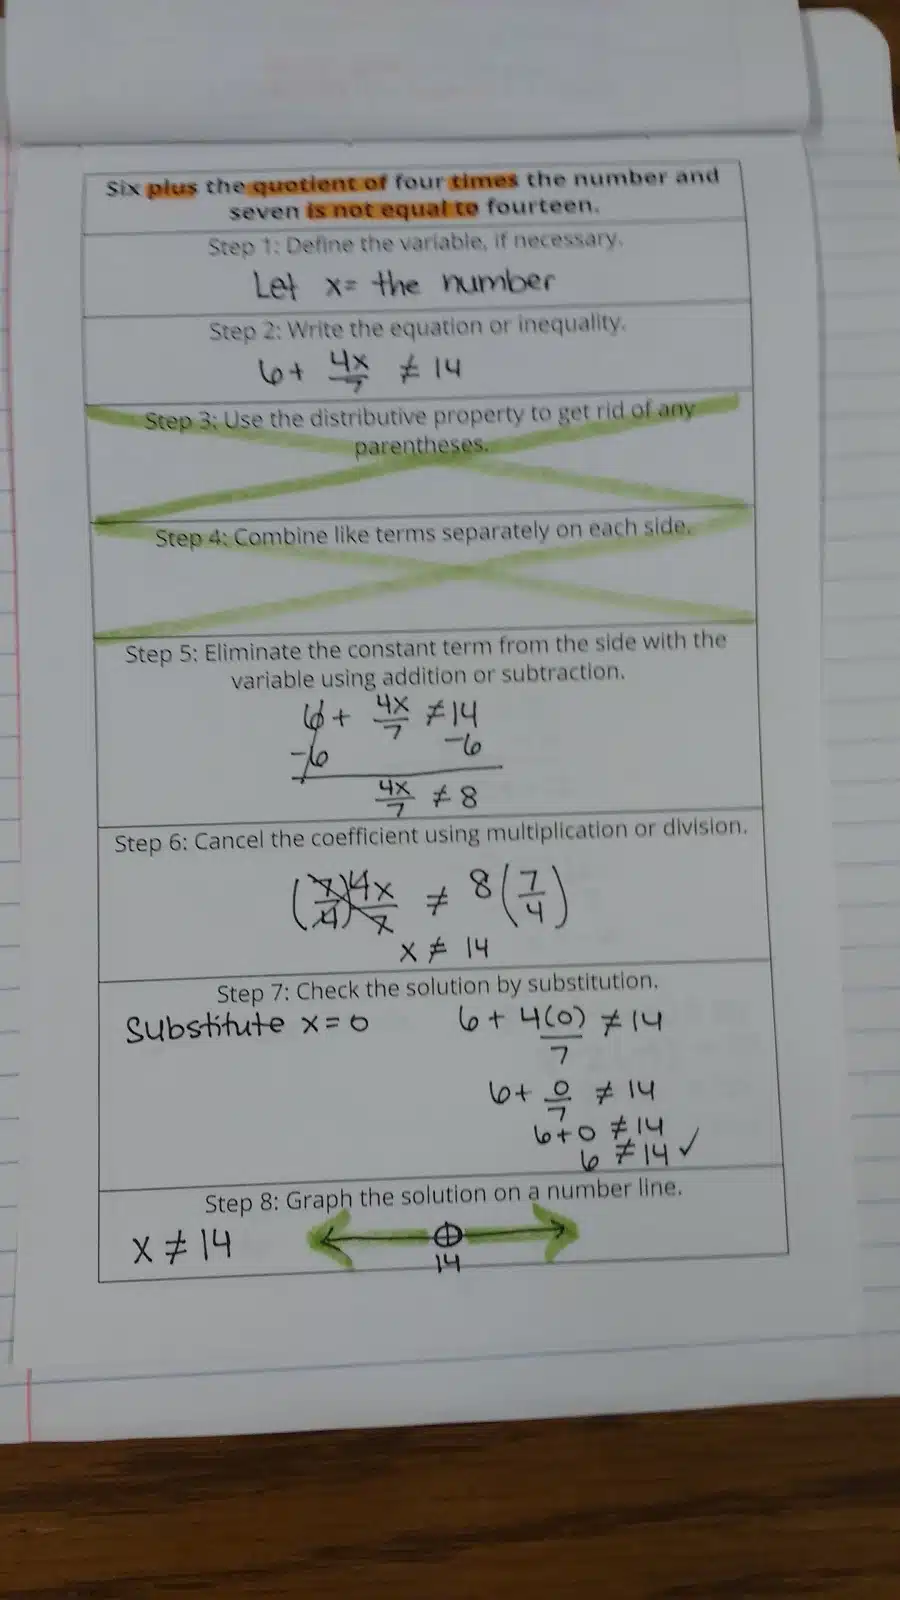 Six plus the quotient of four times the number and
seven is not equal to fourteen.
Step 1: Define the variable, if necessary.
Let x = the number
Step 2: Write the equation or inequality.
6 + 4x/7 ≠ 14
Step 3: Use the distributive property to get rid of any
parentheses.
Step 4: Combine like terms separately on each side.
Step 5: Eliminate the constant term from the side with the
variable using addition or subtraction.
6 + 4x/7 ≠ 14
-6 -6
4x/7 ≠ 8
Step 6: Cancel the coefficient using multiplication or division.
(7/4) 4x/7 ≠ 8 (7/4)
x ≠ 14
Step 7: Check the solution by substitution.
Substitute x = 0 6 + 4(0)/7 ≠ 14
6 + 0/7 ≠ 14
6 + 0 ≠ 14
6 ≠ 14 ✓
Step 8: Graph the solution on a number line.
x ≠ 14
14